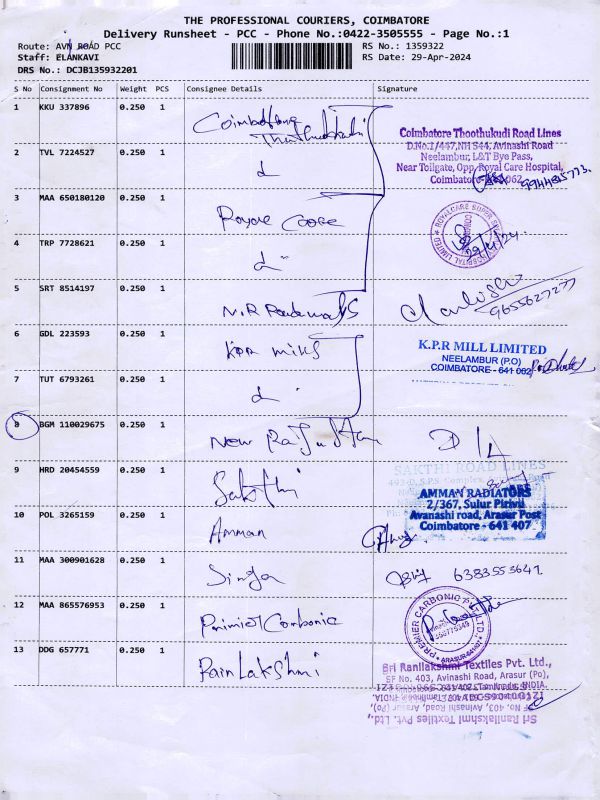 THE PROFESSIONAL COURIERS, COIMBATORE
Delivery Runsheet - PCC - Phone No.:0422-3505555 - Page No.:1
Route: AVN ROAD PCC
RS No.: 1359322
Staff: ELANKAVI
RS Date: 29-Apr-2024
DRS No.: DCJB135932201
S No Consignment No Weight PCS Consignee Details Signature
1 KKU 337896 0.250 1 Coimbatore Thoothukudi
Coimbatore Thoothukudi Road Lines
D.No.1/447,NH 544, Avinashi Road
Neelambur, L&T Bye Pass,
Near Tollgate, Opp. Royal Care Hospital,
Coimbatore- 062
2 TVL 7224527 0.250 1
3 MAA 650180120 0.250 1 Royal Care
4 TRP 7728621 0.250 1
29/4/24
5 SRT 8514197 0.250 1 N.R
9655627277
6 GDL 223593 0.250 1 KPR mills
K.P.R MILL LIMITED
NEELAMBUR (P.O)
COIMBATORE - 641 062
7 TUT 6793261 0.250 1
8 BGM 110029675 0.250 1 New D/L
9 HRD 20454559 0.250 1 Sakthi
SAKTHI ROAD LINES
AMMAN RADIATORS
2/367, Sulur Pirivu
Avanashi road, Arasur Post
Coimbatore - 641 407
10 POL 3265159 0.250 1 Amman
11 MAA 300901628 0.250 1 Singa
6383553641
12 MAA 865576953 0.250 1 Carbonic
PREMIER CARBONIC PVT LTD.,
13 DDG 657771 0.250 1 Lakshmi
Sri Ranilakshmi Textiles Pvt. Ltd.,
SF No. 403, Avinashi Road, Arasur (Po),
Sri Ranilakshmi Textiles Pvt. Ltd.,
SF No. 403, Avinashi Road, Arasur (Po),